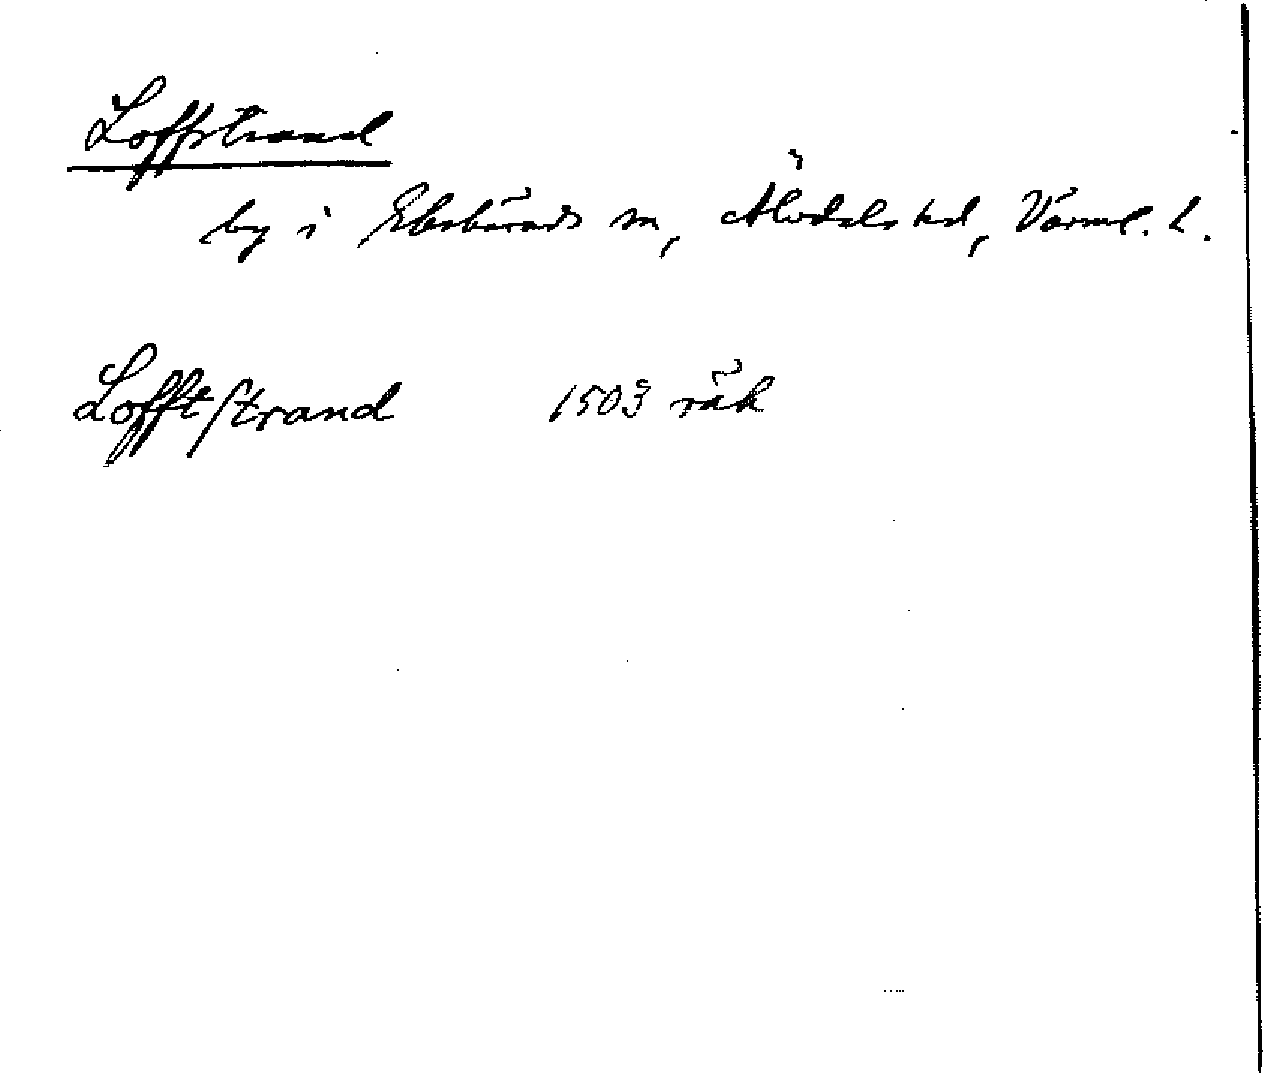 Loffstrand
by i Ekshärads sn, Älvdals hd, Värml. l.
Lofftstrand 1503 räk